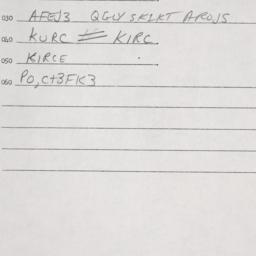 030 AFEJ3 QGLY SKLKT AROJS
040 KURC = KIRC.
050 KIRCE
060 PO,C+3FK3